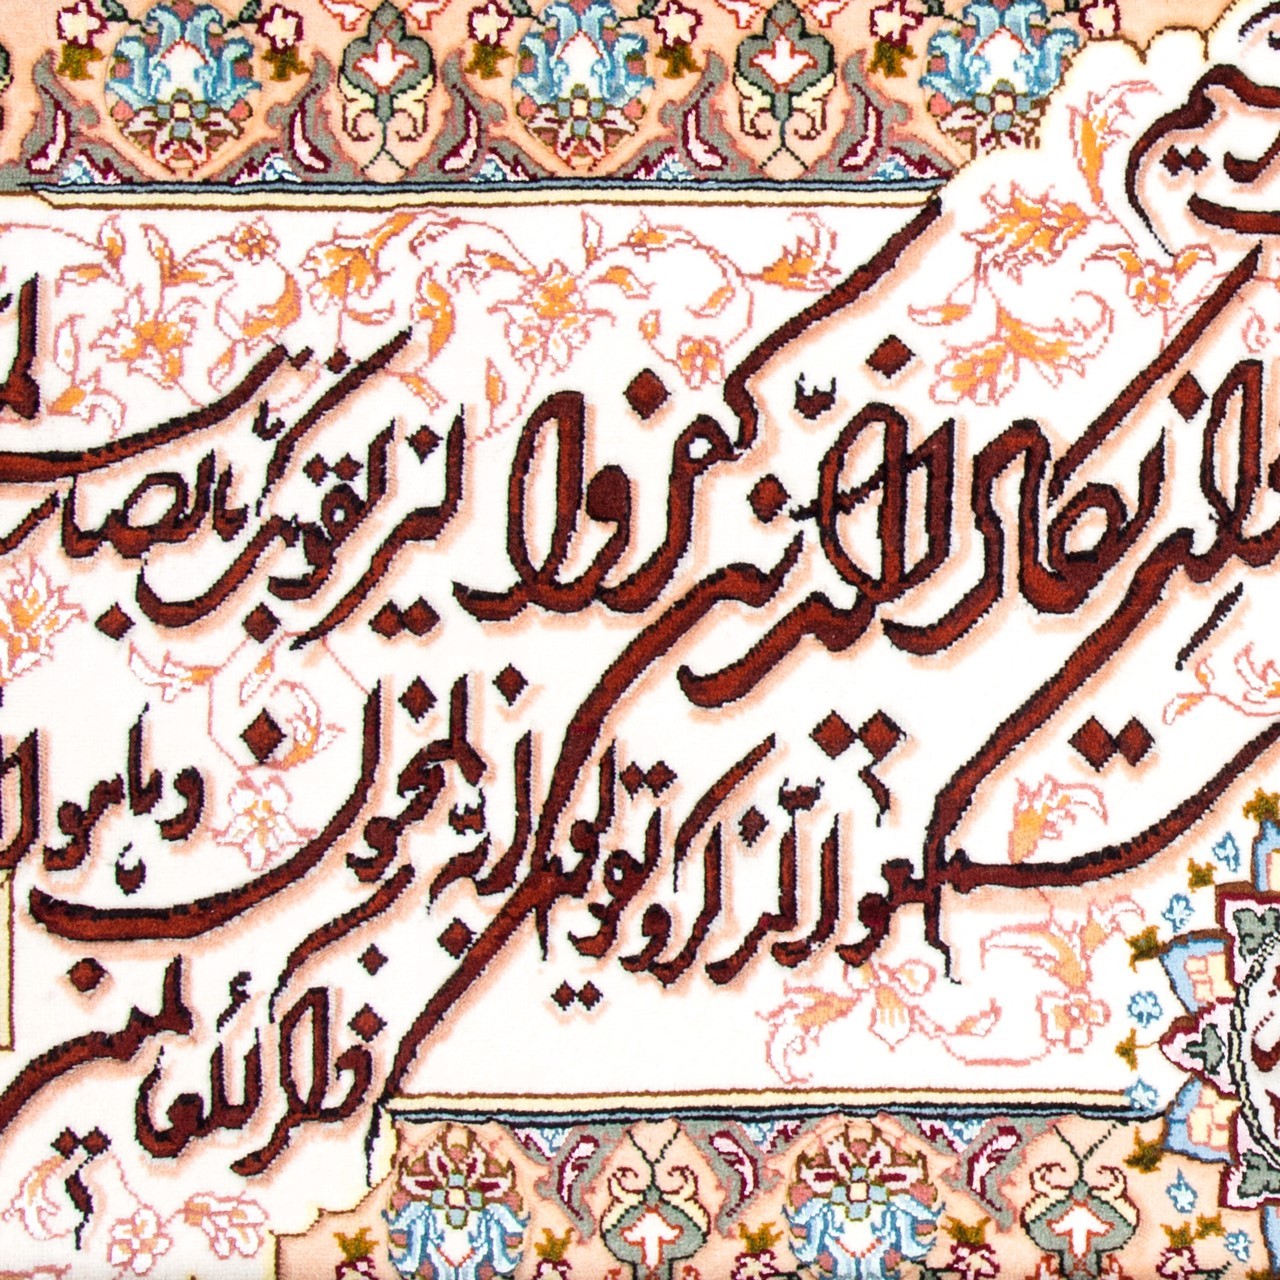 وان يكاد الذين كفروا ليزلقونك بابصار
لما سمعوا الذكر ويقولون انه لمجنون وما هو الا
ذكر للعالمين